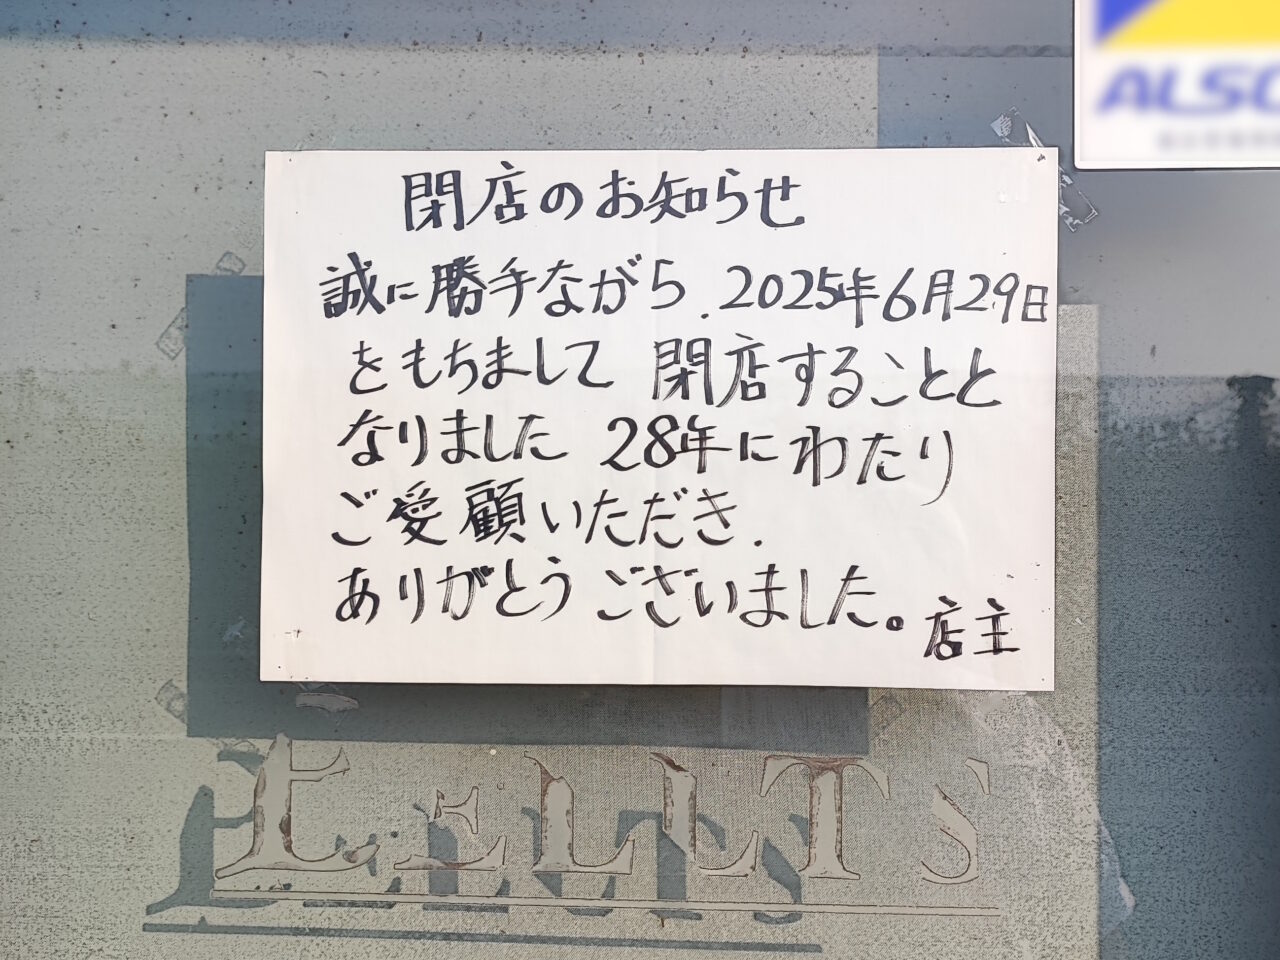 閉店のお知らせ
誠に勝手ながら、2025年6月29日
をもちまして 閉店することと
なりました 28年にわたり
ご愛顧いただき、
ありがとうございました。
店主